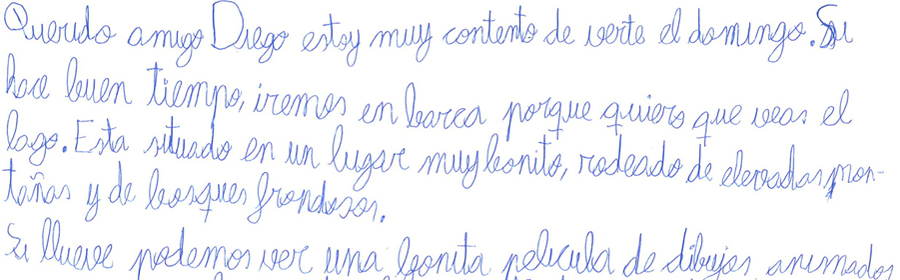 Querido amigo Diego estoy muy contento de verte el domingo. Si
hace buen tiempo, iremos en barca porque quiero que veas el
lago. Esta situado en un lugar muy bonito, rodeado de elevadas mon-
tañas y de bosques frondosos.
Si llueve podemos ver una bonita pelicula de dibujos animados